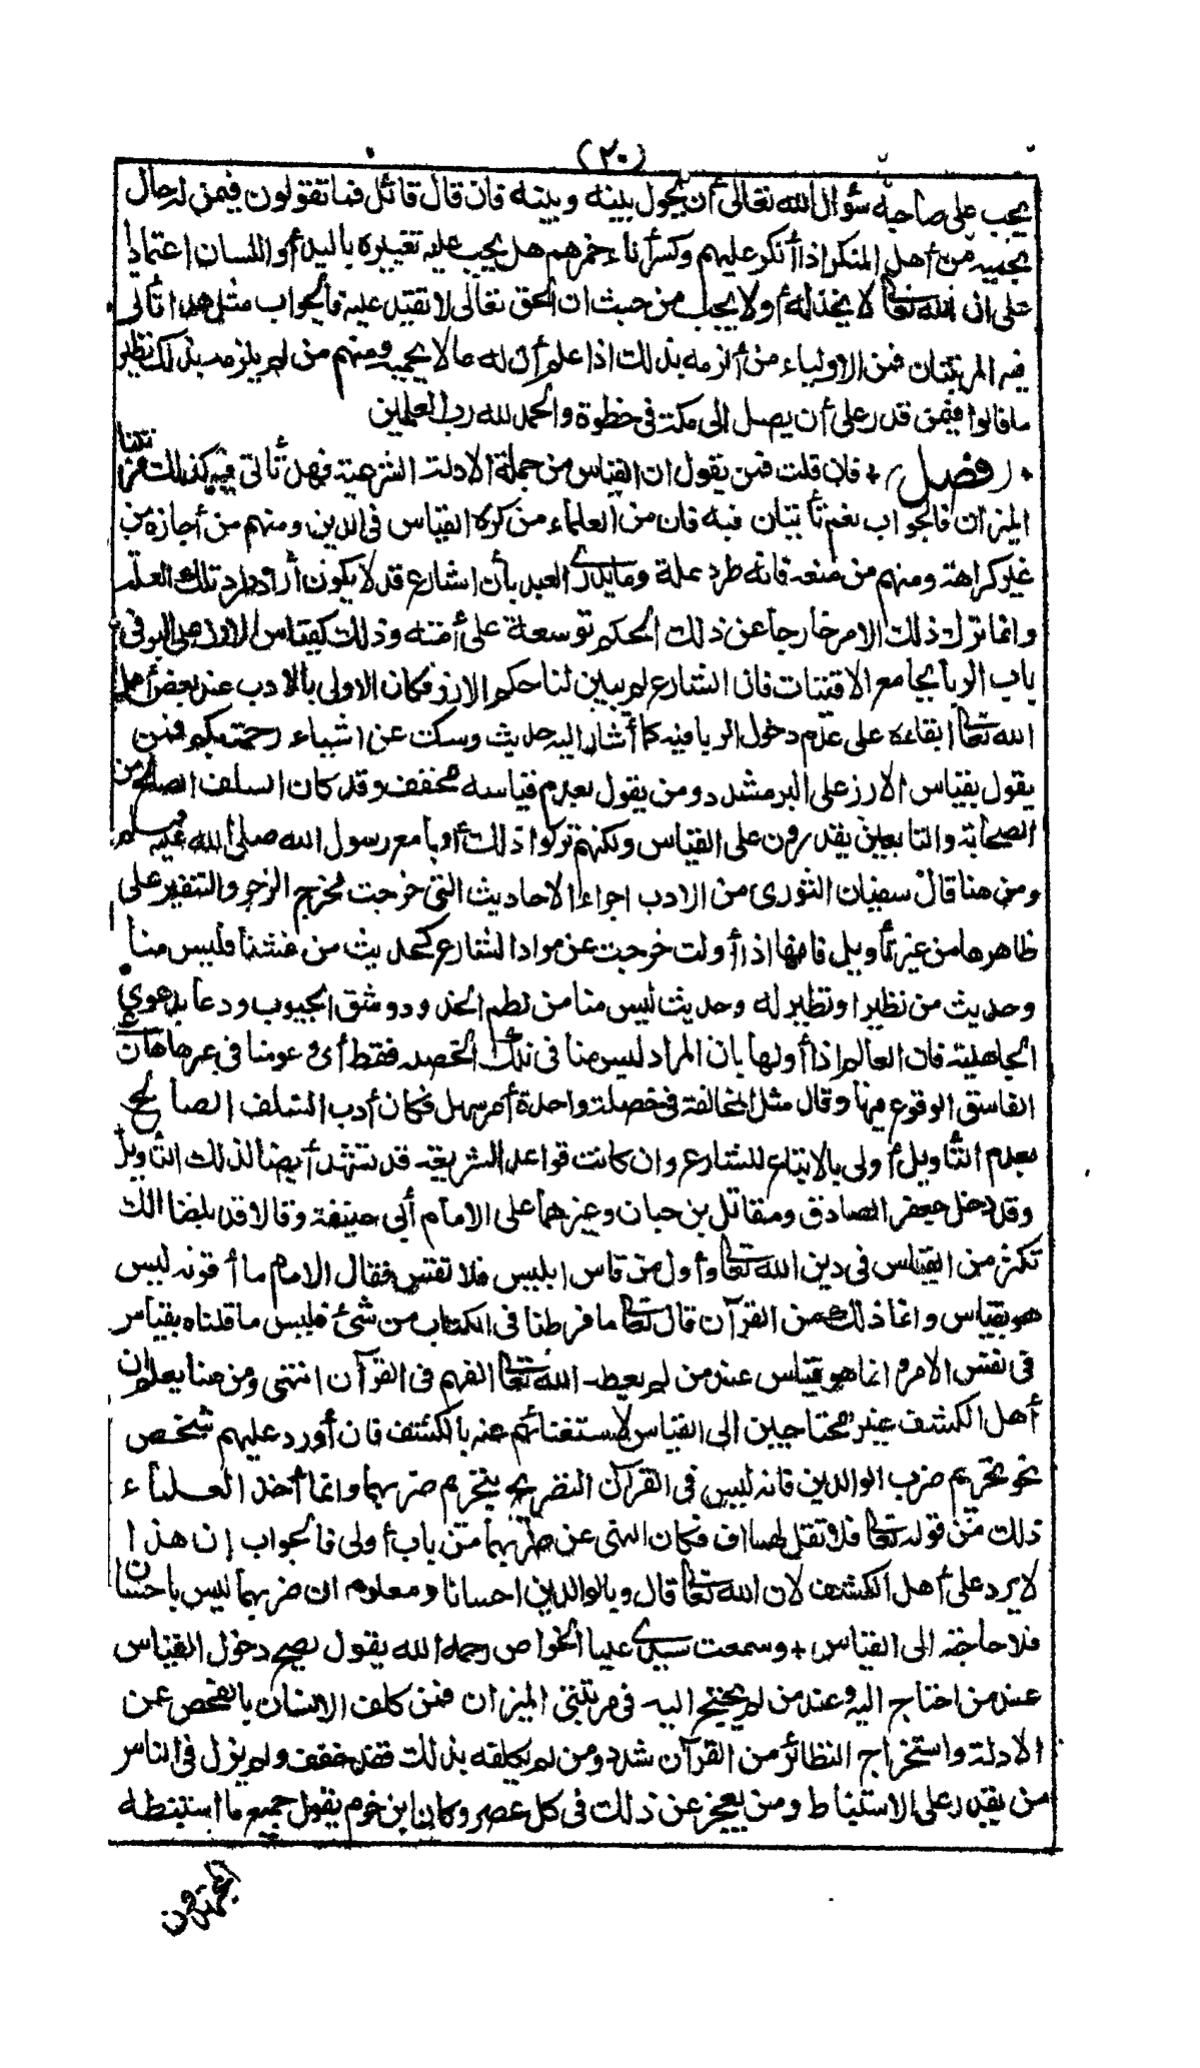 (٢٠)
يجب على صاحبه سؤال الله تعالى أن يحول بينه وبينه فان قال قائل فما تقولون فيمن له حال
يحميه من أهل المنكر اذا أنكر عليهم وكسر أناء خمرهم هل يجب عليه تغييره باليد أو اللسان اعتمادا
على ان الله تعالى لا يخذله أو لا يجب من حيث ان الحق تعالى لا تقييد عليه فالجواب مثل هذا تأتى
فيه المرتبتان فمن الاولياء من ألزمه بذلك اذا علم أن له حالا يحميه ومنهم من لم يلزمه بذلك نظير
ما قالوا فيمن قدر على أن يصل الى مكة فى خطوة والحمد لله رب العلمين
+ (فصل) + فان قلت فمن يقول ان القياس من جملة الادلة الشرعية فهل تأتى فيه كذلك مرتبتا
الميزان فالجواب نعم تأتيان فيه فان من العلماء من كره القياس فى الدين ومنهم من أجازه من
غير كراهة ومنهم من منعه فانه طرد علة وما يدرى العبد بأن الشارع قد لا يكون أراد طرد تلك العلة
وانما ترك ذلك الامر خارجا عن ذلك الحكم توسعة على أمته وذلك كقياس الارز على البر فى
باب الربا بجامع الاقتيات فان الشارع لم يبين لنا حكم الارز فكان الاولى بالادب عند بعض أهل
الله تعالى ابقاءه على عدم دخول الربا فيه كما أشار اليه حديث وسكت عن اشياء رحمة بكم فمن
يقول بقياس الارز على البر مشدد ومن يقول بعدم قياسه مخفف وقد كان السلف الصالح من
الصحابة والتابعين يقدرون على القياس ولكنهم تركوا ذلك أدبا مع رسول الله صلى الله عليه وسلم
ومن هنا قال سفيان الثورى من الادب اجراء الاحاديث التى خرجت مخرج الزجر والتنفير على
ظاهرها من غير تأويل فانها اذا أولت خرجت عن مراد الشارع كحديث من غشنا فليس منا
وحديث من تطير او تطير له وحديث ليس منا من لطم الخدود وشق الجيوب ودعا بدعوى
الجاهلية فان العالم اذا أولها بان المراد ليس منا فى تلك الخصلة فقط أى وهو منا فى غيرها هان على
الفاسق الوقوع فيها وقال مثل المخالفة فى خصلة واحدة أمر سهل فكان أدب السلف الصالح
بعدم التأويل أولى بالاتباع للشارع وان كانت قواعد الشريعة قد تشهد أيضا لذلك التأويل
وقد دخل جعفر الصادق ومقاتل بن حبان وغيرهما على الامام أبى حنيفة وقالا قد بلغنا انك
تكثر من القياس فى دين الله تعالى وأول من قاس ابليس فلا تقس فقال الامام ما أقوله ليس
هو بقياس وانما ذلك من القرآن قال تعالى ما فرطنا فى الكتاب من شئ فليس ما قلناه بقياس
فى نفس الامر وانما هو قياس عند من لم يعطه الله تعالى الفهم فى القرآن انتهى ومن هنا يعلم ان
أهل الكشف غير محتاجين الى القياس لاستغنائهم عنه بالكشف فان أورد عليهم شخص
نحو تحريم ضرب الوالدين فانه ليس فى القرآن التصريح بتحريم ضربهما وانما أخذ العلماء
ذلك من قوله تعالى فلا تقل لهما اف فكان النهى عن ضربهما من باب أولى فالجواب إن هذا
لا يرد على أهل الكشف لان الله تعالى قال وبالوالدين احسانا ومعلوم ان ضربهما ليس باحسان
فلا حاجة الى القياس + وسمعت سيدى عليا الخواص رحمه الله يقول يصح دخول القياس
عند من احتاج اليه وعند من لم يحتج اليه فى مرتبتى الميزان فمن كلف الانسان بالفحص عن
الادلة واستخراج النظائر من القرآن شدد ومن لم يكلفه بذلك فقد خفف ولم يزل فى الناس
من يقدر على الاستنباط ومن يعجز عن ذلك فى كل عصر وكان ابن حزم يقول جميع ما استنبطه
المجتهدون